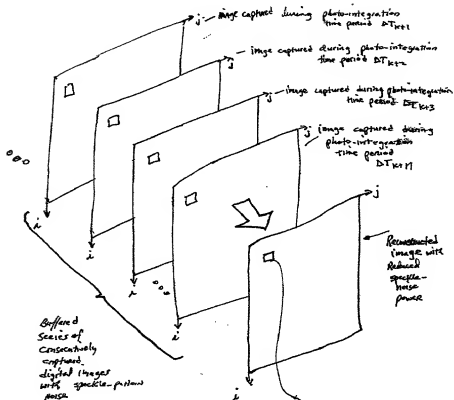 j image captured during photo-integration
time period ΔT K+1
j image captured during photo-integration
time period ΔT K+2
j image captured during photo-integration
time period ΔT K+3
j image captured during
photo-integration
time period
ΔT K+M
j
i
i
i
i
i
Reconstructed
image with
Reduced
speckle-
noise
power
Buffered
Series of
consecutively
captured
digital images
with speckle-pattern
noise